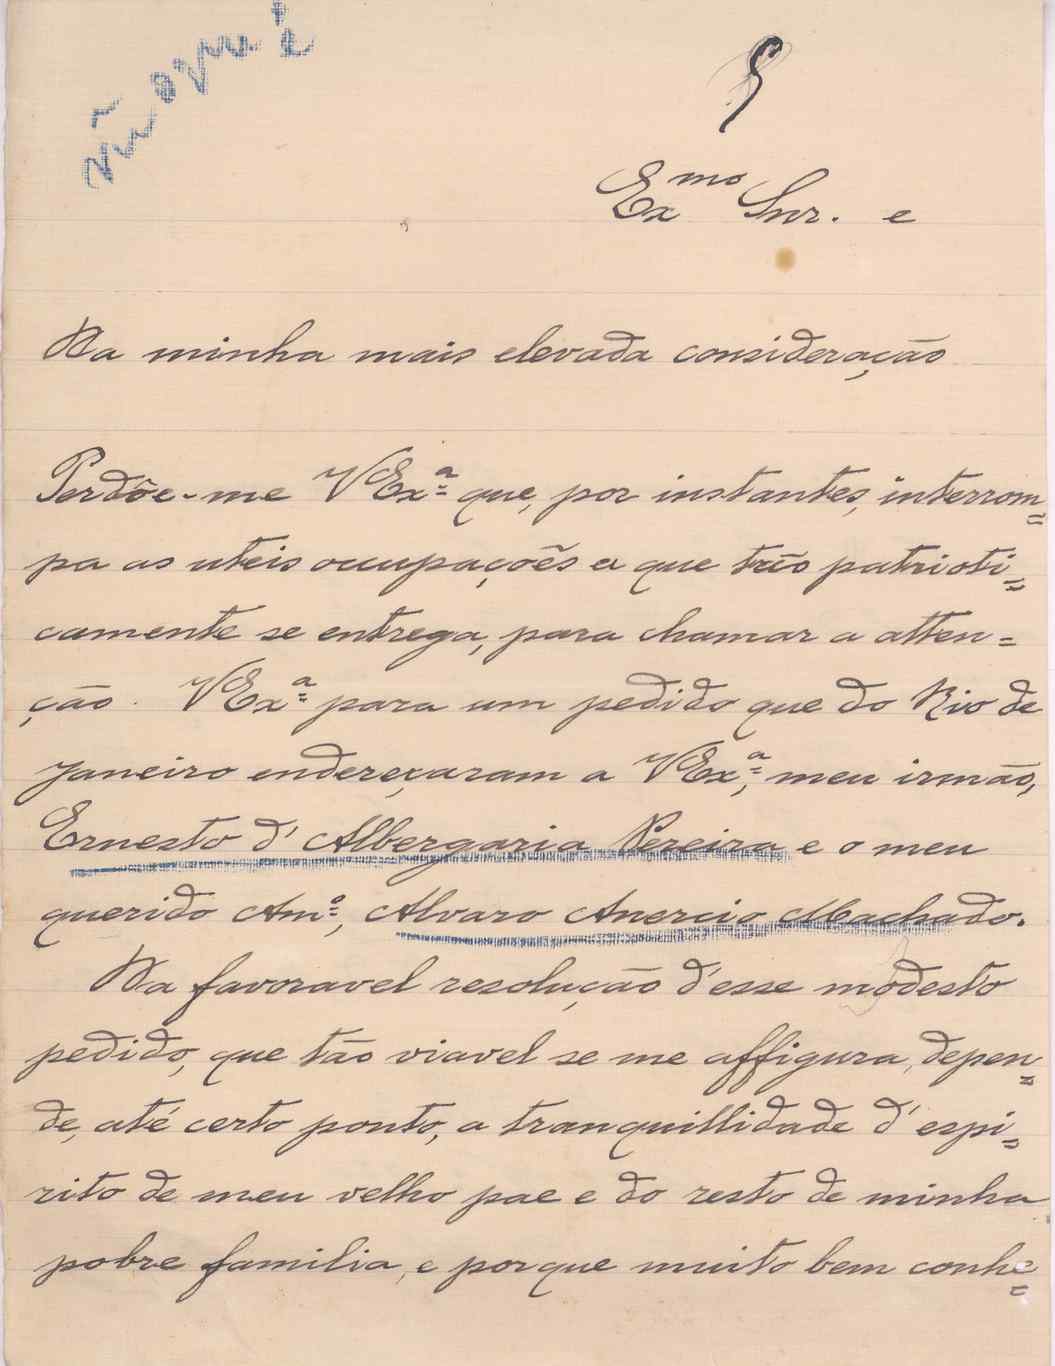 não é
Exmo Snr. e
Da minha mais elevada consideração
Perdôe-me VExª que, por instantes, interrom=
pa as uteis occupações a que tão patrioti=
camente se entrega, para chamar a atten=
ção. VExª para um pedido que do Rio de
Janeiro endereçaram a VExª, meu irmão,
Ernesto d'Albergaria Pereira e o meu
querido Amº, Alvaro Anercio Machado.
Da favoravel resolução d'esse modesto
pedido, que tão viavel se me affigura, depen=
de, até certo ponto, a tranquillidade d'espi=
rito de meu velho pae e do resto de minha
pobre familia, e porque muito bem conhe=